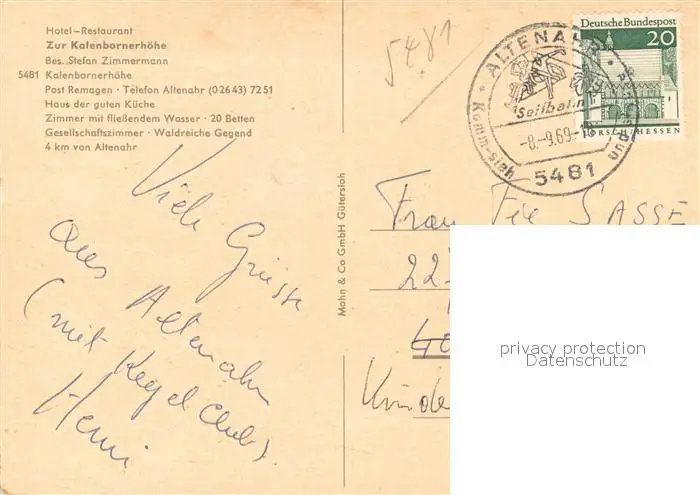 Hotel-Restaurant
Zur Kalenbornerhöhe
Bes. Stefan Zimmermann
5481 Kalenbornerhöhe
Post Remagen · Telefon Altenahr (0 26 43) 72 51
Haus der guten Küche
Zimmer mit fließendem Wasser · 20 Betten
Gesellschaftszimmer · Waldreiche Gegend
4 km von Altenahr
Viele Grüsse
aus Altenahr
(mit Kegelclub)
Henni
Mohn & Co GmbH Gütersloh
5481
ALTENAHR
Seilbahn
-8.-9.69-18
5481
Deutsche Bundespost
20
LORSCH/HESSEN
Frau Fie SASSE
22
40
Kinde
privacy protection
Datenschutz